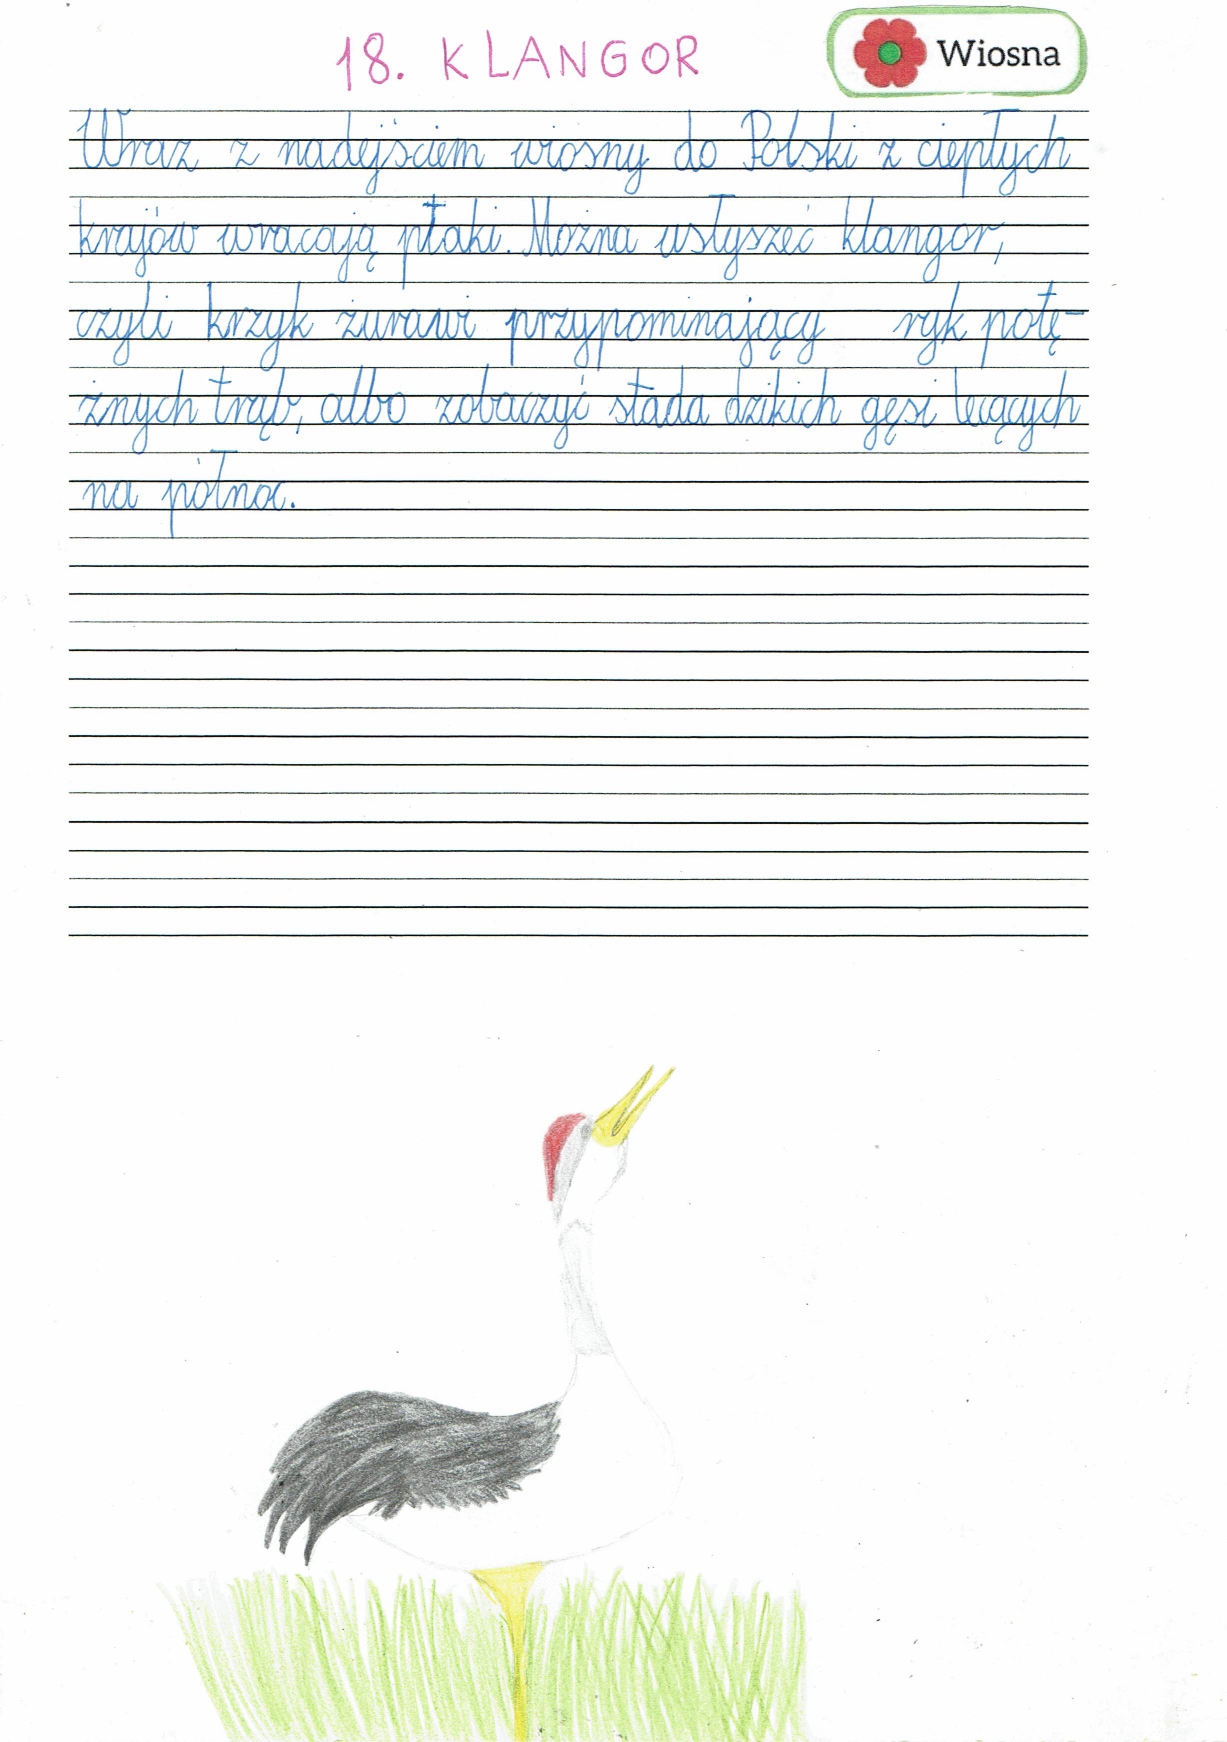 18. KLANGOR
Wiosna
Wraz z nadejściem wiosny do Polski z ciepłych
krajów wracają ptaki. Można usłyszeć klangor,
czyli krzyk żurawi przypominający ryk potę-
żnych trąb, albo zobaczyć stada dzikich gęsi lecących
na północ.